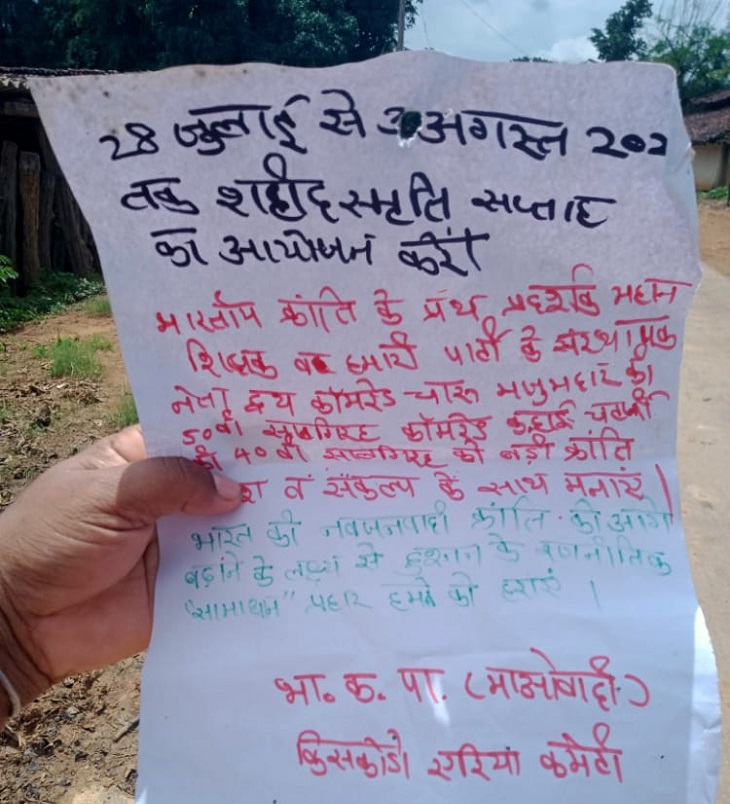 28 जुलाई से 3 अगस्त 202
तक शहीद स्मृति सप्ताह
का आयोजन करें
भारतीय क्रांति के प्रथ प्रदर्शक महान
शिक्षक व हमारी पार्टी के संस्थापक
नेता द्वय कॉमरेड चारू मजुमदार की
50वीं सालगिरह कॉमरेड कन्हाई चटर्जी
की 40 वीं सालगिरह को बड़ी क्रांति
व संकल्प के साथ मनाएं।
भारत की नवजनवादी क्रांति को आगे
बढ़ाने के लक्ष्य से दुश्मन के रणनीतिक
"सामाधान" प्रहार हमले को हराएं ।
भा. क. पा. (माओवादी)
किसकोडो एरिया कमेटी